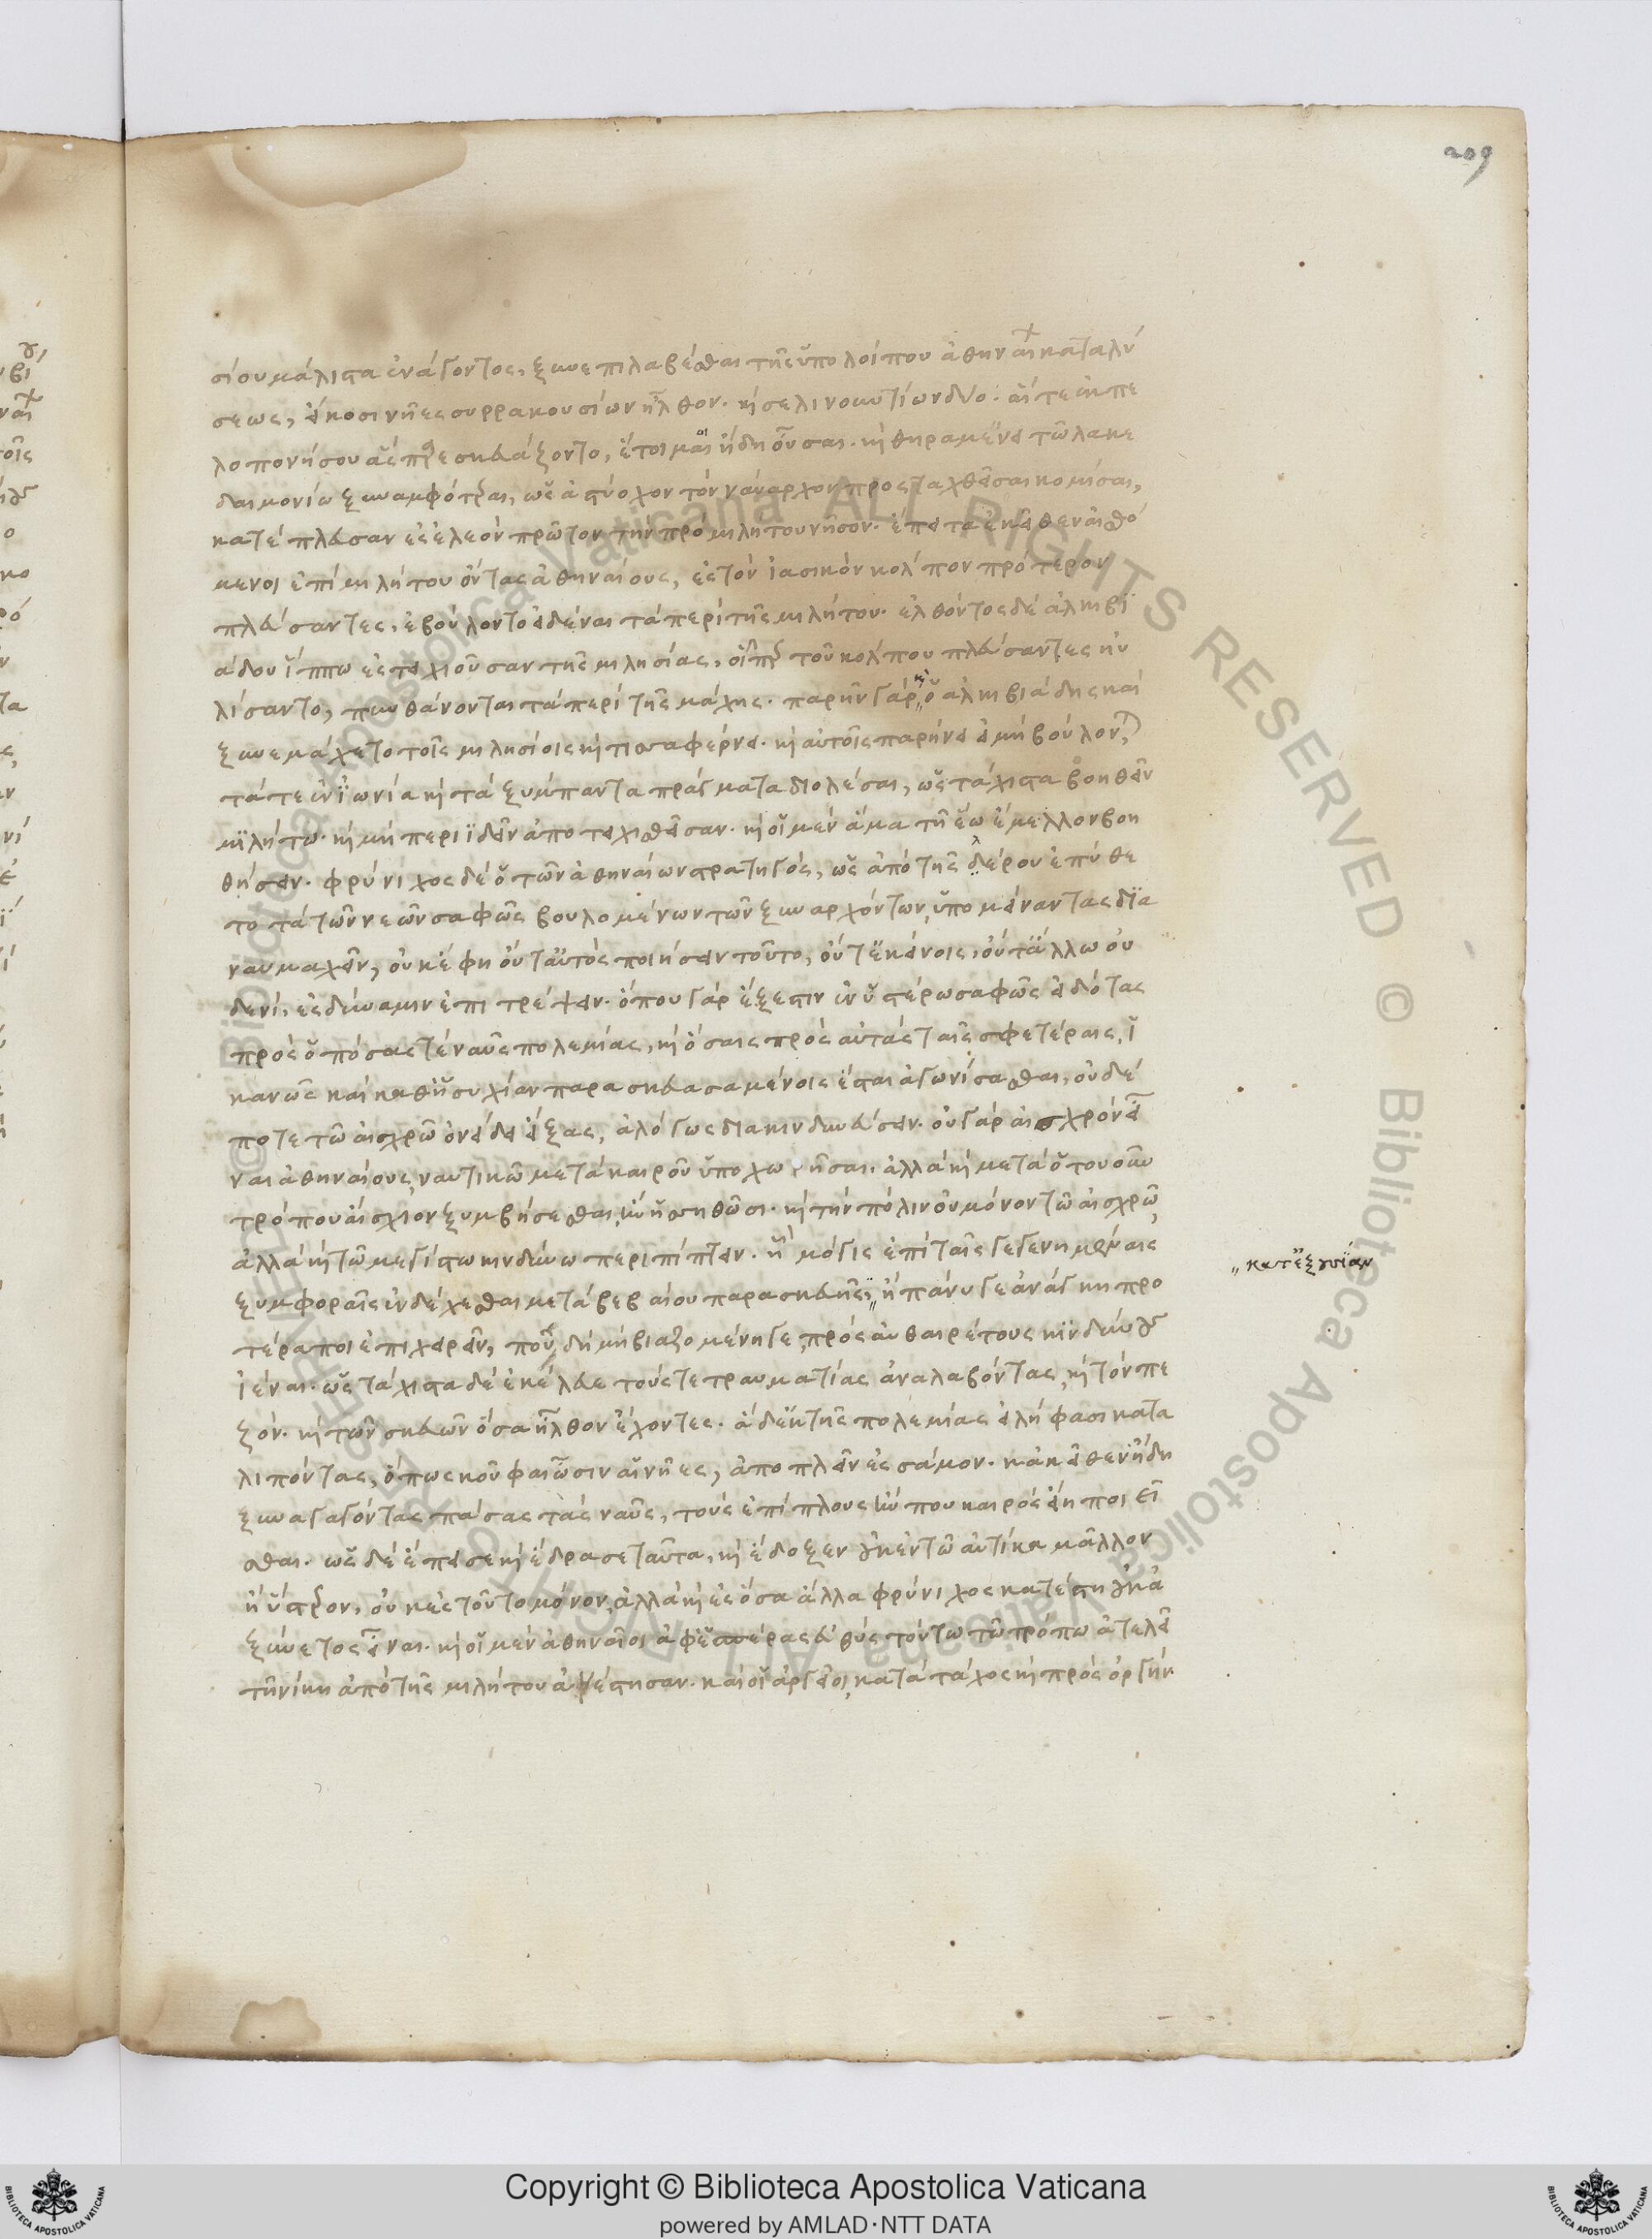 209
σίου μάλιστα ἐνάγοντος, ξυνεπιλαβέσθαι τῆς ὑπολοίπου ἀθηναίων καταλύ
σεως, εἴκοσι νῆες συρρακουσίων ἦλθον. καὶ σελινουντίων δύο. αἵ τε ἐκ πε
λοπονήσου ἃς παρεσκευάζοντο, ἑτοῖμαι ἤδη οὖσαι. καὶ θηραμένει τῶ λακε
δαιμονίω ξυναμφότεραι, ὡς ἀστύοχον τὸν ναύαρχον προσταχθεῖσαι κομίσαι,
κατέπλευσαν ἐς ἐλεὸν πρῶτον τὴν πρὸ μιλήτου νῆσον. ἔπειτα ἐκεῖθεν αἰσθό
μενοι ἐπὶ μιλήτου ὄντας ἀθηναίους, ἐς τὸν ἰασικὸν κόλπον πρότερον
πλεύσαντες, ἐβούλοντο εἰδέναι τὰ περὶ τῆς μιλήτου. ἐλθόντος δὲ ἀλκιβι
άδου ἵππω ἐς τειχιοῦσαν τῆς μιλησίας, οἷπερ τοῦ κόλπου πλεύσαντες ηὐ
λίσαντο, πυνθάνονται τὰ περὶ τῆς μάχης. παρῆν γὰρ καὶ ὁ ἀλκιβιάδης καὶ
ξυνεμάχετο τοῖς μιλησίοις καὶ τισσαφέρνει. καὶ αὐτοῖς παρήνει εἰ μὴ βούλονται
τά τε ἐν ἰωνία καὶ τὰ ξύμπαντα πράγματα διολέσαι, ὡς τάχιστα βοηθεῖν
μιλήτω. καὶ μὴ περιϊδεῖν ἀποτειχισθεῖσαν. καὶ οἱ μὲν ἅμα τῆ ἕω ἔμελλον βοη
θήσειν. φρύνιχος δὲ ὁ τῶν ἀθηναίων στρατηγός, ὡς ἀπὸ τῆς δέρου ἐπύθε
το τὰ τῶν νεῶν σαφῶς βουλομένων τῶν ξυναρχόντων, ὑπομείναντας δια
ναυμαχεῖν, οὐκ ἔφη οὔτ' αὐτὸς ποιήσειν τοῦτο, οὔτ' ἐκείνοις, οὔτ' ἄλλω οὐ
δενί, ἐς δύναμιν ἐπιτρέψειν. ὅπου γὰρ ἔξεστιν ἐν ὑστέρω σαφῶς εἰδότας
πρὸς ὁπόσας τὲ ναῦς πολεμίας, καὶ ὅσαις πρὸς αὐτὰς ταῖς σφετέραις, ἱ
κανῶς καὶ καθ' ἡσυχίαν παρασκευασαμένοις ἔσται ἀγωνίσασθαι, οὐδέ
ποτε τῶ αἰσχρῶ ὀνείδει εἴξας, ἀλόγως διακινδυνεύσειν. οὐ γὰρ αἰσχρὸν εἶ
ναι ἀθηναίους ναυτικῶ μετὰ καιροῦ ὑποχωρῆσαι. ἀλλὰ καὶ μετὰ ὅτου οὖν
τρόπου αἴσχιον ξυμβήσεσθαι, ἢν ἡσσηθῶσι. καὶ τὴν πόλιν οὐ μόνον τῶ αἰσχρῶ,
ἀλλὰ καὶ τῶ μεγίστω κινδύνω περιπίπτειν. ἧ μόγις ἐπὶ ταῖς γεγενημέναις
ξυμφοραῖς ἐνδέχεσθαι μετὰ βεβαίου παρασκευῆς, ἢ πάνυ γε ἀνάγκη προ
κατ' ἐξουσίαν
τέρα ποι ἐπιχειρεῖν, ποῦ δὴ μὴ βιαζομένη γε πρὸς αὐθαιρέτους κινδύνους
ἰέναι. ὡς τάχιστα δὲ ἐκέλευε τούς τε τραυματίας ἀναλαβόντας, καὶ τὸν πε
ζόν. καὶ τῶν σκευῶν ὅσα ἦλθον ἔχοντες. ἃ δ' ἐκ τῆς πολεμίας εἰλήφασι κατα
λιπόντας, ὅπως κοῦφαι ὦσιν αἱ νῆες, ἀποπλεῖν ἐς σάμον. κἀκεῖθεν ἤδη
ξυναγαγόντας πάσας τὰς ναῦς, τοὺς ἐπίπλους ἤν που καιρὸς ἦ ποιεῖ
σθαι. ὡς δὲ ἔπεισε καὶ ἔδρασε ταῦτα, καὶ ἔδοξεν οὐκ ἐν τῶ αὐτίκα μᾶλλον
ἢ ὕστερον, οὐκ ἐς τοῦτο μόνον, ἀλλὰ καὶ ἐς ὅσα ἄλλα φρύνιχος κατέστη οὐκ ἀ
ξύνετος εἶναι. καὶ οἱ μὲν ἀθηναῖοι ἀφ' ἑσπέρας εὐθὺς τούτω τῶ τρόπω ἀτελεῖ
τῆ νίκη ἀπὸ τῆς μιλήτου ἀνέστησαν. καὶ οἱ ἀργεῖοι κατὰ τάχος καὶ πρὸς ὀργὴν
Copyright © Biblioteca Apostolica Vaticana
powered by AMLAD·NTT DATA